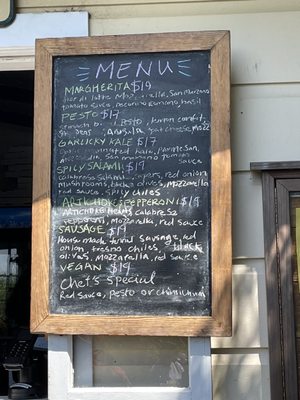 MENU
MARGHERITA $19
Fior di latte Mozzarella, San Marzano
tomato sauce, pecorino Romano, basil
PESTO $17
Pesto, tomato confit,
Arugula
GARLICKY KALE $17
kale, Parmesan,
San marzano tomato
sauce
SPICY SALAMI $19
Calabrese Salami, red onion
mushrooms, black olives, Mozzarella
red sauce, spicy chiles
ARTICHOKE PEPPERONI $19
ARTICHOKE Hearts, calabrese
pepperoni, Mozzarella, red sauce
SAUSAGE $19
House made fennel sausage, red
onion, fresno chiles, black
olives, Mozzarella, red sauce
VEGAN $19
Chef's Special
Red sauce, pesto or chimichurri